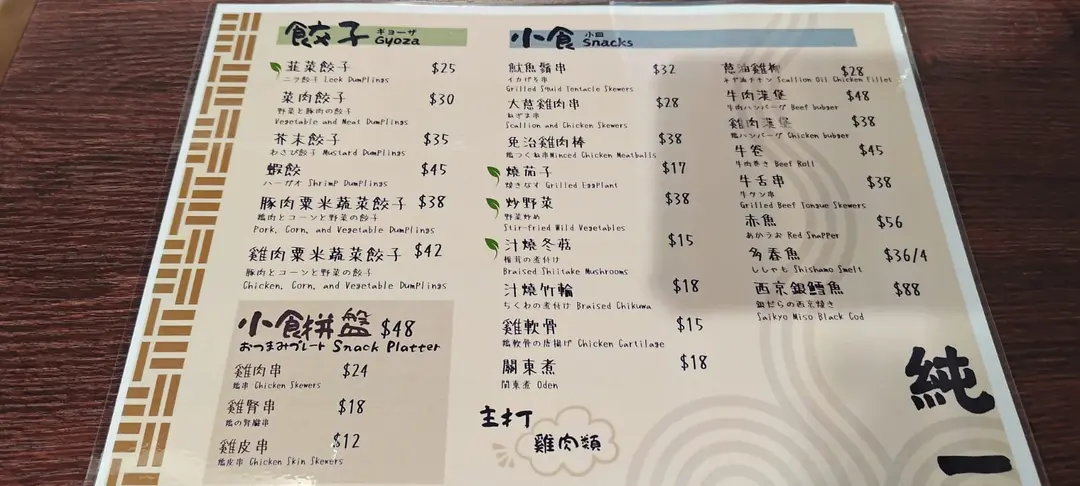 餃子 ギョーザ Gyoza
韮菜餃子 $25
ニラ餃子 Leek Dumplings
菜肉餃子 $30
野菜と豚肉の餃子
Vegetable and Meat Dumplings
芥末餃子 $35
わさび餃子 Mustard Dumplings
蝦餃 $45
ハーガオ Shrimp Dumplings
豚肉粟米蔬菜餃子 $38
鶏肉とコーンと野菜の餃子
Pork, Corn, and Vegetable Dumplings
雞肉粟米蔬菜餃子 $42
豚肉とコーンと野菜の餃子
Chicken, Corn, and Vegetable Dumplings
小食拼盤 $48
おつまみプレート Snack Platter
雞肉串 $24
鶏串 Chicken Skewers
雞腎串 $18
鶏の腎臓串
雞皮串 $12
鶏皮串 Chicken Skin Skewers
小食 小皿 Snacks
魷魚鬚串 $32
イカげそ串
Grilled Squid Tentacle Skewers
大蔥雞肉串 $28
ねぎま串
Scallion and Chicken Skewers
免治雞肉棒 $38
鶏つくね串Minced Chicken Meatballs
燒茄子 $17
焼きなす Grilled Eggplant
炒野菜 $38
野菜炒め
Stir-fried Wild Vegetables
汁燒冬菇 $15
椎茸の煮付け
Braised Shiitake Mushrooms
汁燒竹輪 $18
ちくわの煮付け Braised Chikuwa
雞軟骨 $15
鶏軟骨の唐揚げ Chicken Cartilage
關東煮 $18
関東煮 Oden
蔥油雞柳 $28
ネギ油チキン Scallion Oil Chicken Fillet
牛肉漢堡 $48
牛肉ハンバーグ Beef bubger
雞肉漢堡 $38
鶏ハンバーグ Chicken bubger
牛卷 $45
牛肉巻き Beef Roll
牛舌串 $38
牛タン串
Grilled Beef Tongue Skewers
赤魚 $56
あかうお Red Snapper
多春魚 $36/4
ししゃも Shishamo Smelt
西京銀鱈魚 $88
銀だらの西京焼き
Saikyo Miso Black Cod
主打
雞肉類
純
一